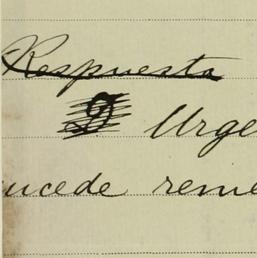 Respuesta
Urge
ucede reme